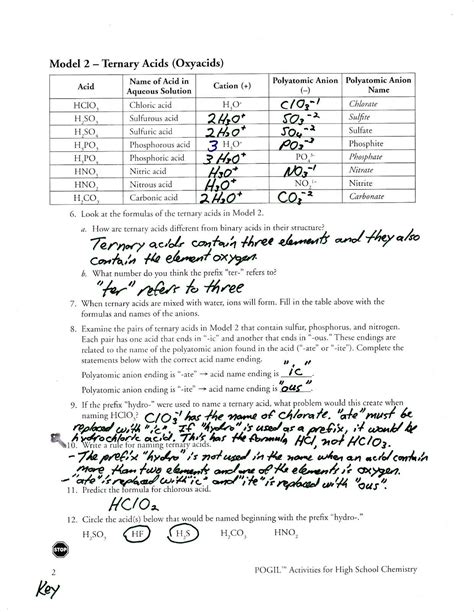 Model 2 – Ternary Acids (Oxyacids)
Acid Name of Acid in Aqueous Solution Cation (+) Polyatomic Anion (–) Polyatomic Anion Name
HClO₃ Chloric acid H₃O⁺ ClO₃⁻¹ Chlorate
H₂SO₃ Sulfurous acid 2H₃O⁺ SO₃⁻² Sulfite
H₂SO₄ Sulfuric acid 2H₃O⁺ SO₄⁻² Sulfate
H₃PO₃ Phosphorous acid 3 H₃O⁺ PO₃⁻³ Phosphite
H₃PO₄ Phosphoric acid 3H₃O⁺ PO₄³⁻ Phosphate
HNO₃ Nitric acid H₃O⁺ NO₃⁻¹ Nitrate
HNO₂ Nitrous acid H₃O⁺ NO₂¹⁻ Nitrite
H₂CO₃ Carbonic acid 2H₃O⁺ CO₃⁻² Carbonate
6. Look at the formulas of the ternary acids in Model 2.
a. How are ternary acids different from binary acids in their structure?
Ternary acids contain three elements and they also
contain the element oxygen.
b. What number do you think the prefix “ter-” refers to?
"ter" refers to three
7. When ternary acids are mixed with water, ions will form. Fill in the table above with the
formulas and names of the anions.
8. Examine the pairs of ternary acids in Model 2 that contain sulfur, phosphorus, and nitrogen.
Each pair has one acid that ends in “-ic” and another that ends in “-ous.” These endings are
related to the name of the polyatomic anion found in the acid (“-ate” or “-ite”). Complete the
statements below with the correct acid name ending.
Polyatomic anion ending is “-ate” → acid name ending is "ic".
Polyatomic anion ending is “-ite” → acid name ending is "ous".
9. If the prefix “hydro-” were used to name a ternary acid, what problem would this create when
naming HClO₃? ClO₃⁻¹ has the name of Chlorate. "ate" must be
replaced with "ic". If "hydro" is used as a prefix, it would be
hydrochloric acid. This has the formula HCl, not HClO₃.
10. Write a rule for naming ternary acids.
- The prefix "hydro" is not used in the name when an acid contain
more than two elements and one of the elements is oxygen.
- "ate" is replaced with "ic" and "ite" is replaced with "ous".
11. Predict the formula for chlorous acid.
HClO₂
12. Circle the acid(s) below that would be named beginning with the prefix “hydro-.”
H₂SO₃ HF H₂S H₂CO₃ HNO₂
STOP
2 POGIL™ Activities for High School Chemistry
Key